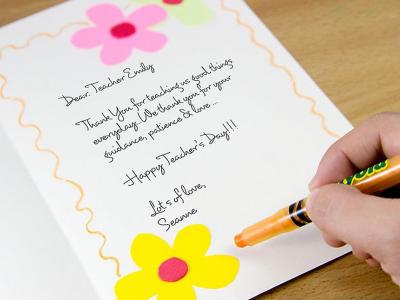 Dear. Teacher Emily
Thank You for teaching us good things
everyday. We thank you for your
guidance, patience & love...
Happy Teacher's Day!!!
Lots of love,
Seanne